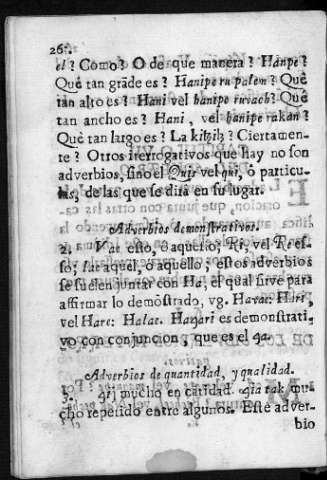 26.
el? Como? O de que manera? Hanpe?
Quê tan grãde es? Hanipe ru palem? Quê
tan alto es? Hani vel hanipe ruvach? Quê
tan ancho es? Hani, vel hanipe rakan?
Quê tan largo es? La kitzitz? Ciertamen-
te? Otros iterrogativos que hay no son
adverbios, sino el Quis vel qui, ò particu-
las, de las que se dirà en su lugar.
Adverbios demonstrativos.
2. Vae esto, ò aquesto; Ri, vel Re es-
so; lae aquel, ò aquello; estos adverbios
se suelen juntar con Ha, el qual sirve para
affirmar lo demõstrado, vg. Havae: Hari,
vel Hare: Halae. Haqari es demonstrati-
vo con conjuncion, que es el qa.
Adverbios de quantidad, y qualidad.
3. qi; mucho en cãtidad. qia tak mu-
cho repetido entre algunos. Este adver-
bio